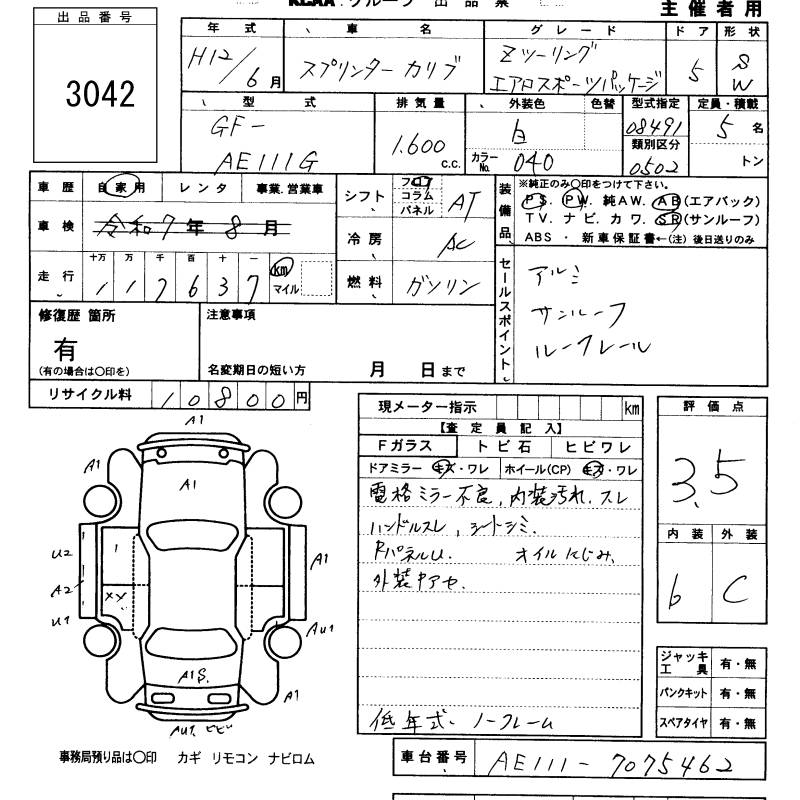 KCAA グループ 出品票
主催者用
出品番号
3042
年式 車名 グレード ドア 形状
H12/6月 スプリンター カリブ Zツーリング エアロスポーツパッケージ 5 SW
型式 排気量 外装色 色替 型式指定 定員・積載
GF-
AE111G
1.600 c.c.
白
カラーNo. 040
08491
類別区分
0502
5 名
トン
車歴 自家用 レンタ 事業.営業車
車検 令和7年8月
走行 十万 万 千 百 十 一
117637 km マイル
シフト フロア コラム パネル AT
冷房 AC
燃料 ガソリン
装備品
※純正のみ〇印をつけて下さい。
PS. PW. 純AW. AB(エアバック)
TV. ナビ. カワ. SR(サンルーフ)
ABS ・ 新車保証書←(注)後日送りのみ
セールスポイント
アルミ
サンルーフ
ルーフレール
修復歴 箇所
有
(有の場合は〇印を)
注意事項
名変期日の短い方 月 日まで
リサイクル料 10800円
現メーター指示 km
【査定員記入】
Fガラス トビ石 ヒビワレ
ドアミラー キズ・ワレ ホイール(CP) キズ・ワレ
電格ミラー不良, 内装汚れ. スレ
ハンドルスレ, シートシミ.
RパネルU. オイルにじみ.
外装中アセ.
低年式. ノークレーム
評価点
3.5
内装 外装
b C
ジャッキ工具 有・無
パンクキット 有・無
スペアタイヤ 有・無
A1
A1
A1
U2
A2
U1
XX
A1
AU1
A1S.
A1
AU1 ビビ
事務局預り品は〇印 カギ リモコン ナビロム
車台番号 AE111-7075462